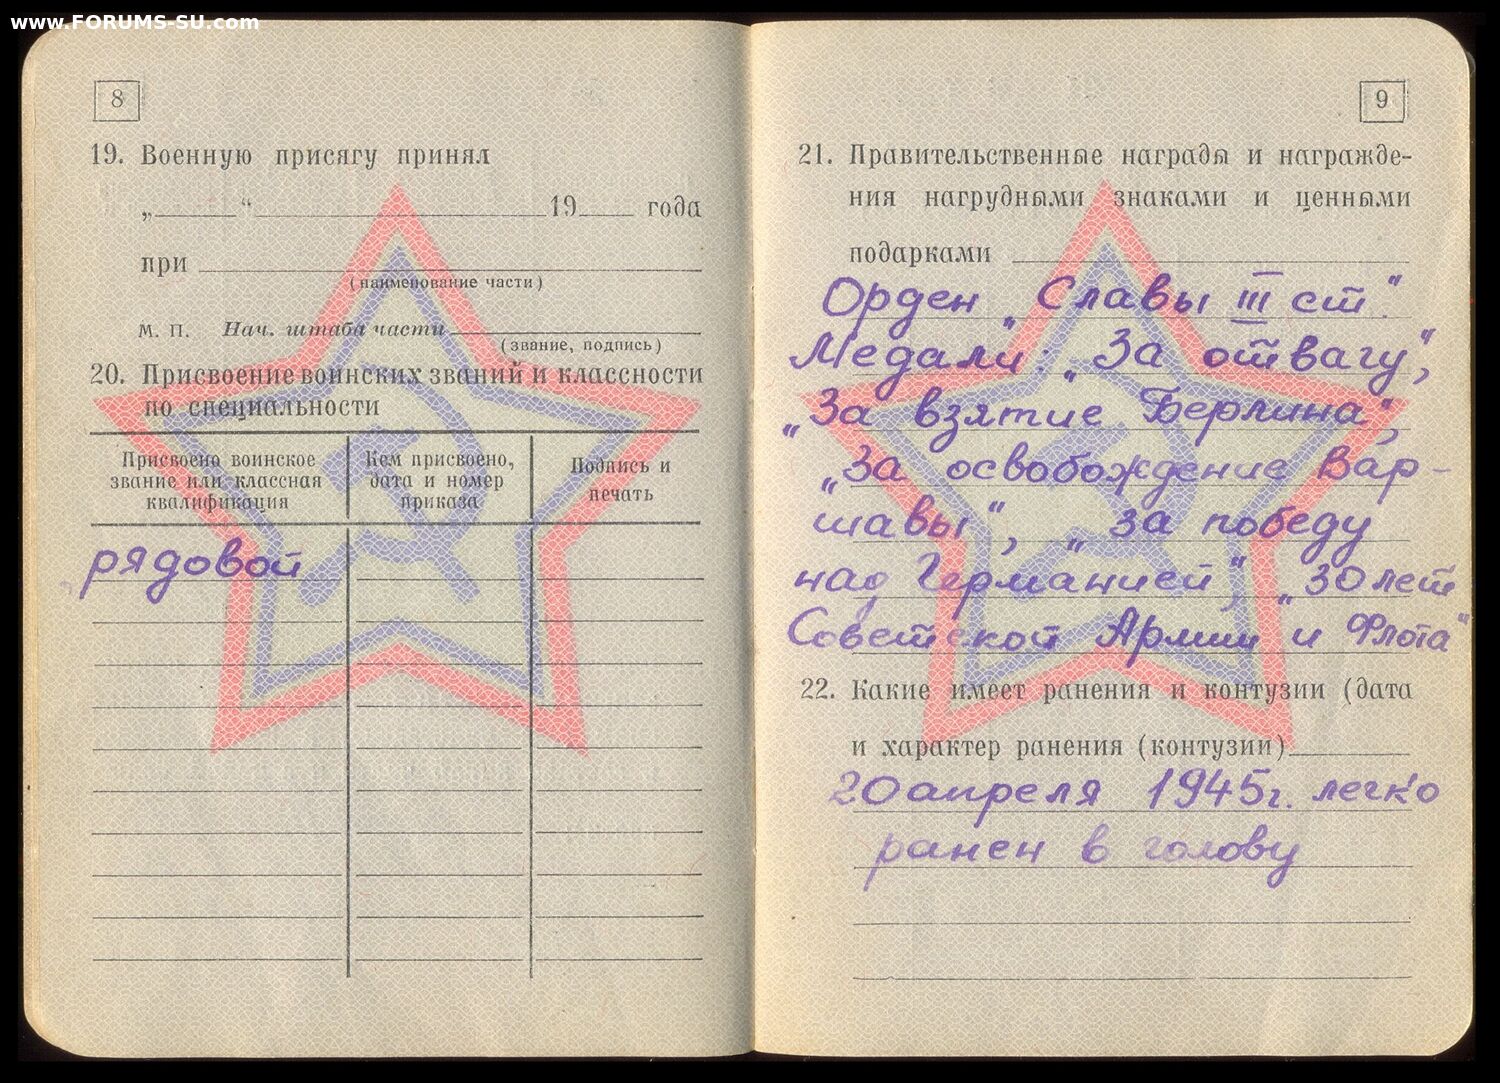 www.FORUMS-SU.com
8
19. Военную присягу принял
„ “ 19 года
при
(наименование части)
М. П. Нач. штаба части
(звание, подпись)
20. Присвоение воинских званий и классности
по специальности
Присвоено воинское
звание или классная
квалификация
Кем присвоено,
дата и номер
приказа
Подпись и
печать
рядовой
9
21. Правительственные награды и награжде-
ния нагрудными знаками и ценными
подарками
Орден „Славы III ст."
Медали: „За отвагу",
„За взятие Берлина",
„За освобождение Вар-
шавы", „за победу
над Германией", „30 лет
Советской Армии и Флота"
22. Какие имеет ранения и контузии (дата
и характер ранения (контузии)
20 апреля 1945г. легко
ранен в голову